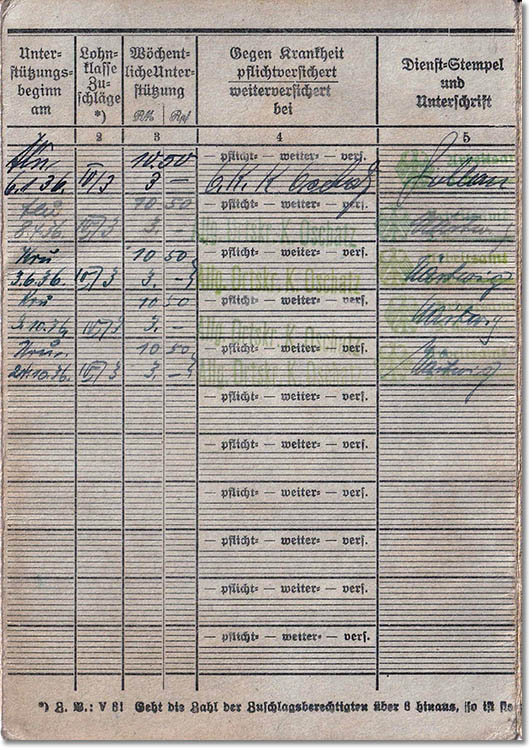 Unter=
stützungs=
beginn
am
Lohn=
klasse
Zu=
schläge
*)
Wöchent=
liche Unter=
stützung
RM Rpf
Gegen Krankheit
pflichtversichert
weiterversichert
bei
Dienst=Stempel
und
Unterschrift
2 3 4 5
10.50 — pflicht= — weiter= — vers.
6.1.36. IV/3 3 — O. K. K Oschatz
10 50 — pflicht= — weiter= — vers.
IV/3 3. — Allg. Ortskr. K. Oschatz
10 50 — pflicht= — weiter= — vers.
3.6.36. IV/3 3. — Allg. Ortskr. K. Oschatz
10 50 — pflicht= — weiter= — vers.
10.36 IV/3 3. — Allg. Ortskr. K. Oschatz
10 50 — pflicht= — weiter= — vers.
10.36. IV/3 3 — Allg. Ortskr. K. Oschatz
— pflicht= — weiter= — vers.
— pflicht= — weiter= — vers.
— pflicht= — weiter= — vers.
— pflicht= — weiter= — vers.
— pflicht= — weiter= — vers.
— pflicht= — weiter= — vers.
*) Z. B.: V 8! Geht die Zahl der Zuschlagsberechtigten über 6 hinaus, so ist